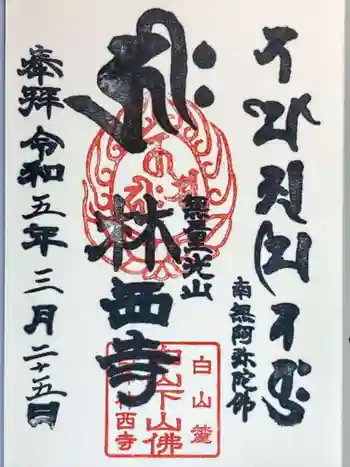 南無阿弥陀佛
無量光山
林西寺
奉拜 令和五年三月二十五日
白山麓
白山下山佛
林西寺